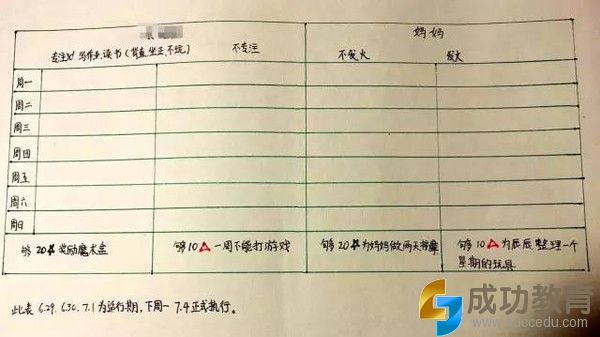 妈妈
专注: 写作业、读书(背直、坐正、不玩)
不专注
不发火
发火
周一
周二
周三
周四
周五
周六
周日
够20★奖励魔术盒
够10△一周不能打游戏
够20★为妈妈做两天按摩
够10△为辰辰整理一个
星期的玩具
此表 6.29、6.30、7.1为运行期,下周一 7.4正式执行。
成功教育
www.succedu.com